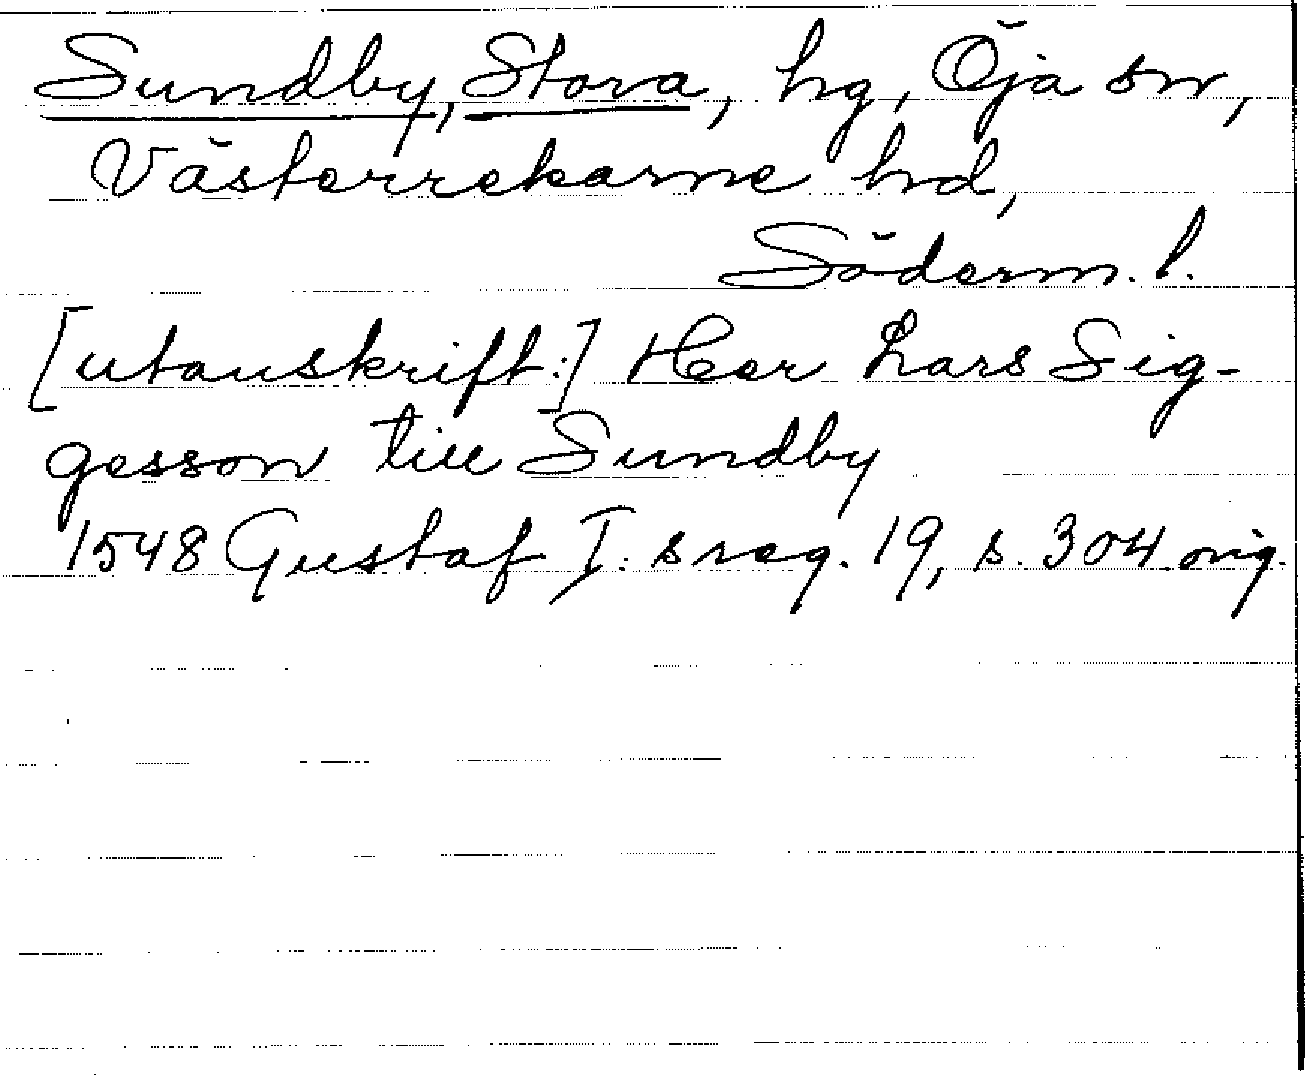 Sundby, Stora, hg, Öja sn,
Västerrekarne hd,
Söderm. l.
[utanskrift:] Her Lars Sig-
gesson till Sundby
1548 Gustaf I:s reg. 19, s. 304 orig.